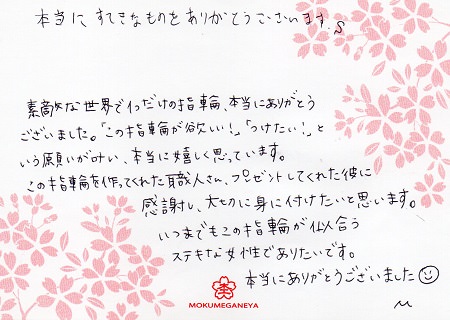 本当に すてきなものをありがとうございます。S
素敵な世界で1つだけの指輪、本当にありがとう
ございました。「この指輪が欲しい!」「つけたい!」と
いう願いが叶い、本当に嬉しく思っています。
この指輪を作ってくれた職人さん、プレゼントしてくれた彼に
感謝し、大切に身に付けたいと思います。
いつまでもこの指輪が似合う
ステキな女性でありたいです。
本当にありがとうございました☺
M
MOKUMEGANEYA